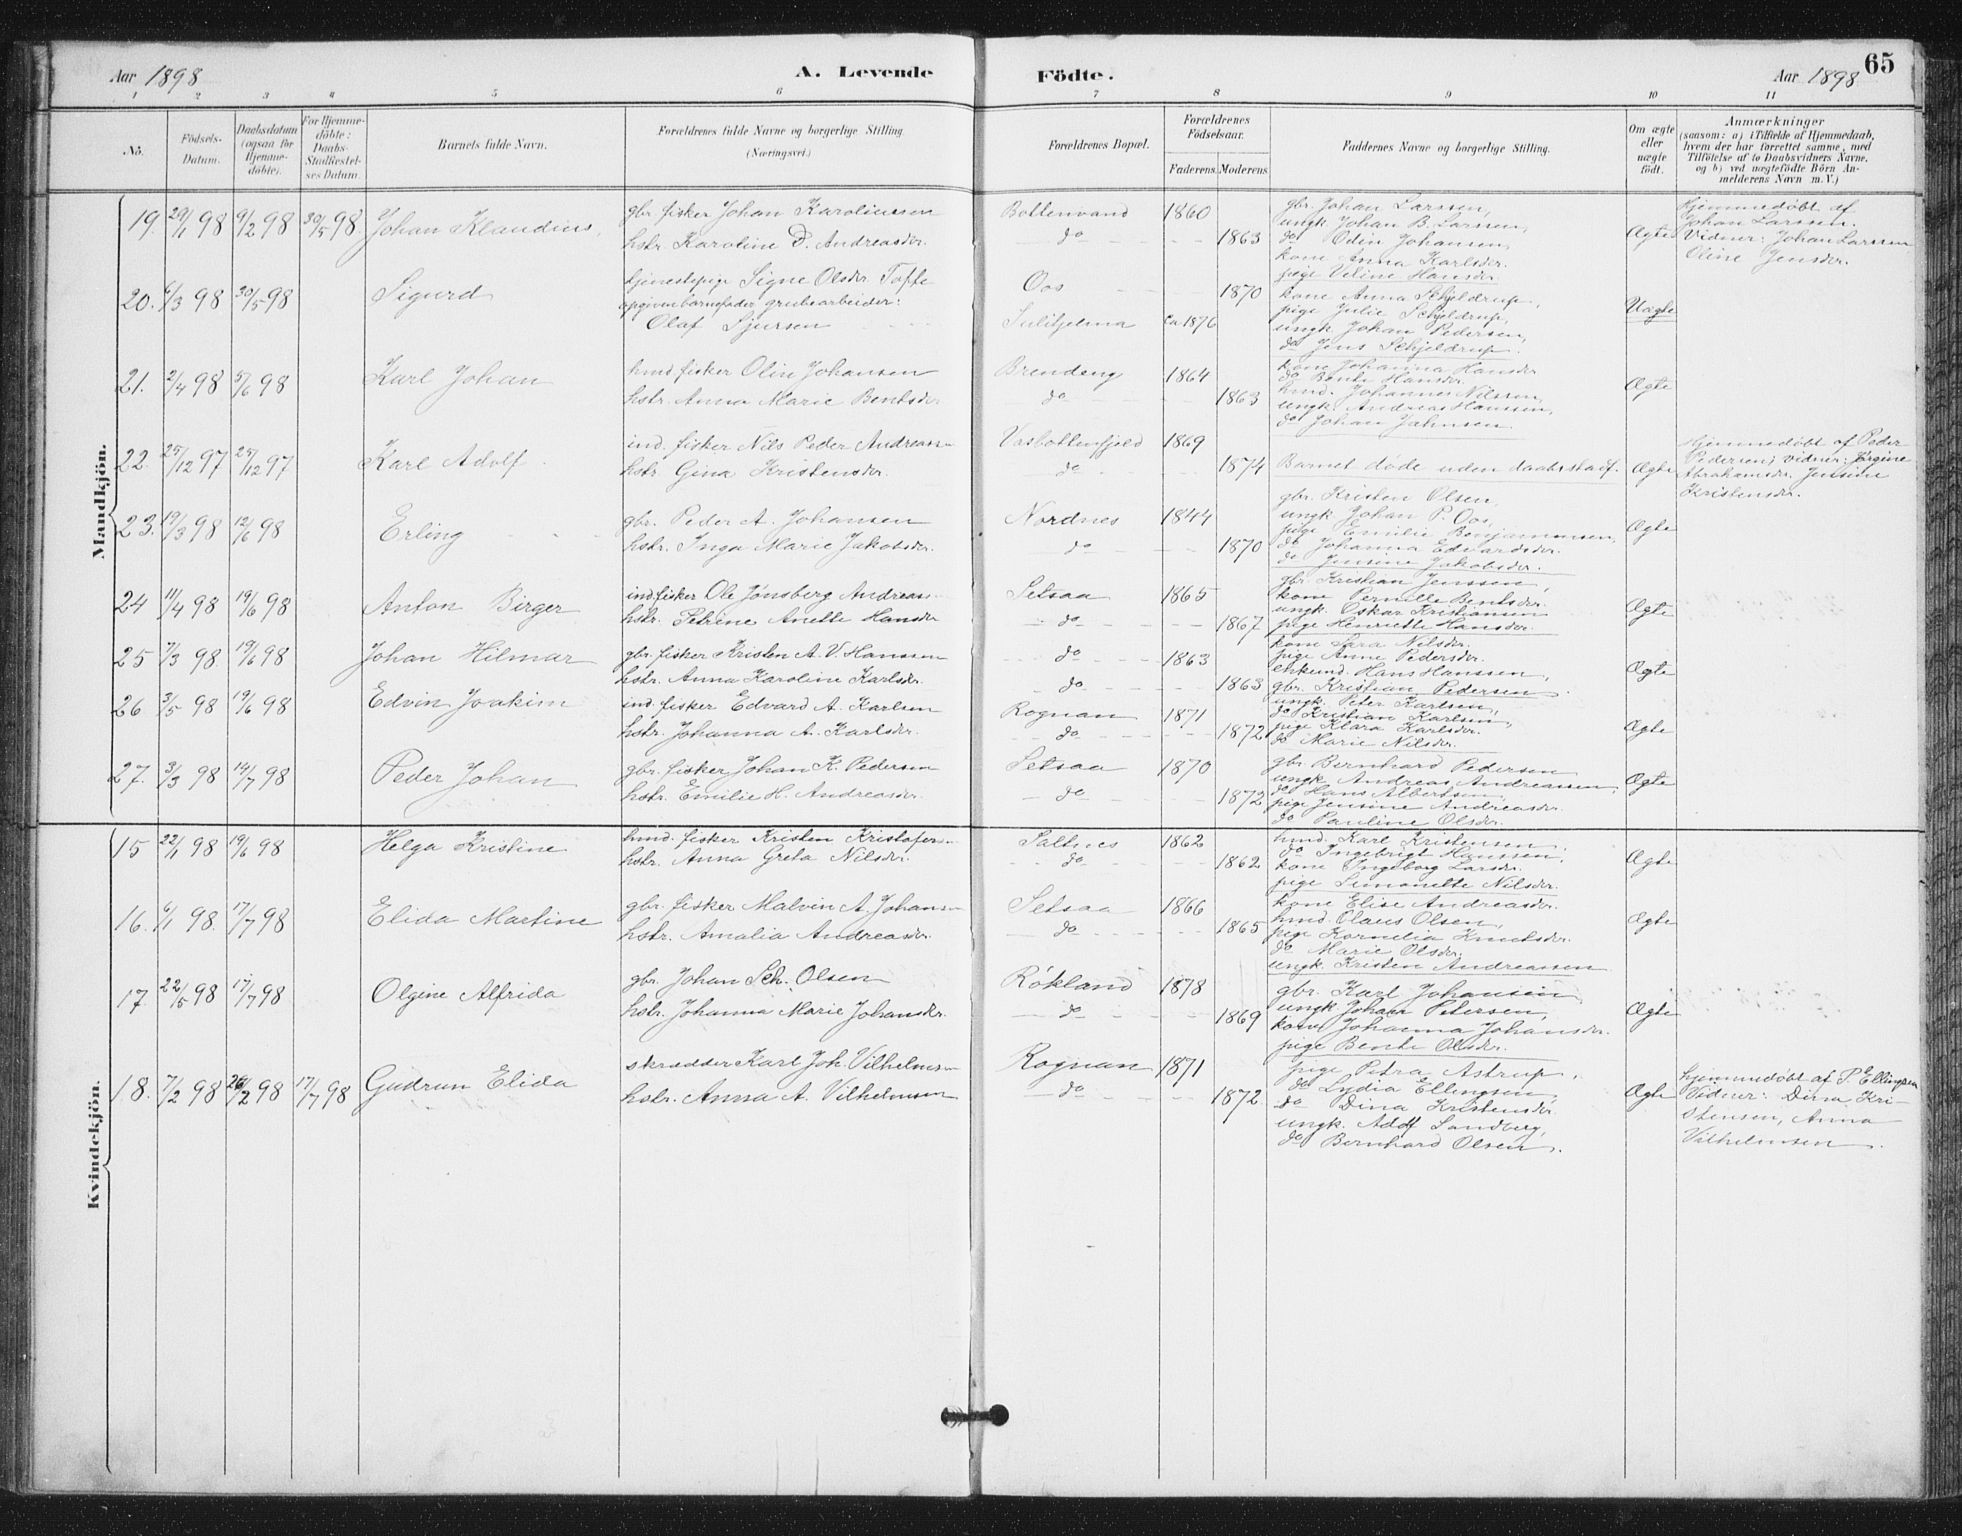 Aar 1898
A. Levende
Födte.
Aar 1898
65
1 2 3 4 5 6 7 8 9 10 11
No.
Födsels-
Datum.
Daabsdatum
(ogsaa for
Hjemme-
döbte).
For Hjemme-
döbte:
Daabs-
Stadfæstel-
ses Datum.
Barnets fulde Navn.
Forældrenes fulde Navne og borgerlige Stilling
(Næringsvei.)
Forældrenes Bopæl.
Forældrenes
Födselsaar.
Faderens. Moderens.
Faddernes Navne og borgerlige Stilling.
Om ægte
eller
uægte
født.
Anmærkninger
(saasom: a) i Tilfælde af Hjemmedaab,
hvem der har forrettet samme, med
Tilföielse af to Daabsvidners Navne,
og b) ved uægtefödte Börn An-
melderens Navn m. V.)
Mandkjön.
19. 29/1 98 9/2 98 30/5 98. Johan Klaudius,
gbr. fisker Johan Karoliussen
hstr. Karoline D. Andreasdr.
Bottenvand 1860
do 1863
gbr. Johan Larssen,
ungk. Johan B. Larssen,
do Odin Johansen,
kone Anna Karlsdr.
pige Veline Hansdr.
Ægte
Hjemmedöbt af
Johan Larssen.
Vidner: Johan Larssen
Oline Jensdr.
20. 6/3 98 30/5 98 Sigurd
tjenestepige Signe Olsdr. Toffe
opgiven barnefader, grubearbeider:
Olaf Sjursen
Oos 1870
Sulitjelma ca 1876
kone Anna Schjeldrup,
pige Julie Schjeldrup,
ungk. Johan Pedersen,
do Jens Schjeldrup.
Uægte
21. 2/4 98 5/6 98 Karl Johan
hmd. fisker Olin Johansen
hstr. Anna Marie Bentsdr.
Brendeng 1864
do 1863
kone Johanna Hansdr.
do Bente Hansdr.
hmd. Johannes Nilssen,
ungk. Andreas Hanssen,
do Johan Jahnsen.
Ægte
22. 25/12 97 25/12 97 Karl Adolf.
ind. fisker Nils Peder Andreass-
hstr. Gina Kristensdr.
Vasbottenfjeld 1869
do 1874
Barnet döde uden daabsstadf.
Ægte
Hjemmedöbt af Peder
Pedersen, vidner: Jörgine
Abrahamsdr. Jensine
Kristensdr.
23. 19/3 98 12/6 98 Erling
gbr. Peder A. Johansen
hstr. Inga Marie Jakobsdr.
Nordnes 1844
do 1870
gbr. Kristen Olsen,
ungk. Johan P. Oos,
pige Emilie Benjaminsen,
do Johanna Edvardsdr.
do Jensine Jakobsdr.
Ægte
24 11/4 98 19/6 98 Anton Birger
ind. fisker Ole Jönsberg Andreas-
hstr. Petrine Anette Hansdr
Setsaa 1865
do 1867
gbr. Kristian Jenssen,
kone Pernille Bentsdr.
ungk. Oskar Kristiansen
pige Henriette Hansdr.
Ægte
25 7/3 98. 19/6 98 Johan Hilmar
gbr. fisker Kristen A. V. Hanssen
hstr. Anna Karoline Karlsdr.
do 1863
do 1863
kone Sara Nilsdr.
pige Anne Pedersdr.
enkemd. Hans Hanssen,
gbr. Kristian Pedersen.
Ægte
26 3/5 98 19/6 98 Edvin Joakim
ind. fisker Edvard A. Karlsen
hstr. Johanna A. Karlsdr.
Rognan 1871
do 1872
ungk. Peter Karlsen,
do Kristian Karlsen,
pige Klara Karlsdr.
do Marie Nilsdr.
Ægte
27. 3/3 98 14/7 98 Peder Johan
gbr. fisker Johan K. Pedersen
hstr. Emilie H. Andreasdr.
Setsaa 1870
do 1872
gbr. Bernhard Pedersen
ungk. Andreas Andreassen,
do Hans Albertsen,
pige Jensine Andreasdr.
do Pauline Olsdr.
Ægte
Kvindekjön.
15 22/1 98 19/6 98 Helga Kristine
hmd. fisker Kristen Kristofers-
hstr. Anna Greta Nilsdr.
Saltnes 1862
do 1862
hmd. Karl Kristensen,
do Ingebrigt Hanssen,
kone Ingeborg Larsdr.
pige Simonette Nilsdr.
Ægte
16. 6/1 98. 17/7 98 Elida Martine
gbr. fisker Malvin A. Johans-
hstr. Amalia Andreasdr.
Setsaa 1866
do 1865
kone Elise Andreasdr.
hmd. Claus Olsen,
pige Kornelia Knutsdr.
do Marie Olsdr.
ungk. Kristen Andreassen
Ægte
17. 22/5 98 17/7 98 Olgine Alfrida
gbr. Johan Sch. Olsen
hstr. Johanna Marie Johansdr.
Rökland 1878
do 1869
gbr. Karl Johansen,
ungk. Johan Petersen,
kone Johanna Johansdr.
pige Bente Olsdr.
Ægte
18. 7/2 98 26/2 98 17/7 98 Gudrun Elida
skrædder Karl Joh. Vilhelms-n
hstr. Anna A. Vilhelmsen
Rognan 1871
do 1872
pige Petra Astrup,
do Lydia Ellingsen,
do Dina Kristensdr.
ungk. Adolf Sandberg,
do Bernhard Olsen.
Ægte
hjemmedöbt af P. Ellingsen
Vidner: Dina Kri-
stensen, Anna
Vilhelmsen.